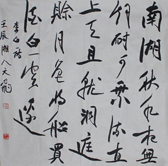 南湖秋水夜無
烟耐可乘流直
上天且就洞庭
賒月色將船買
酒白雲邊
李白詩
壬辰